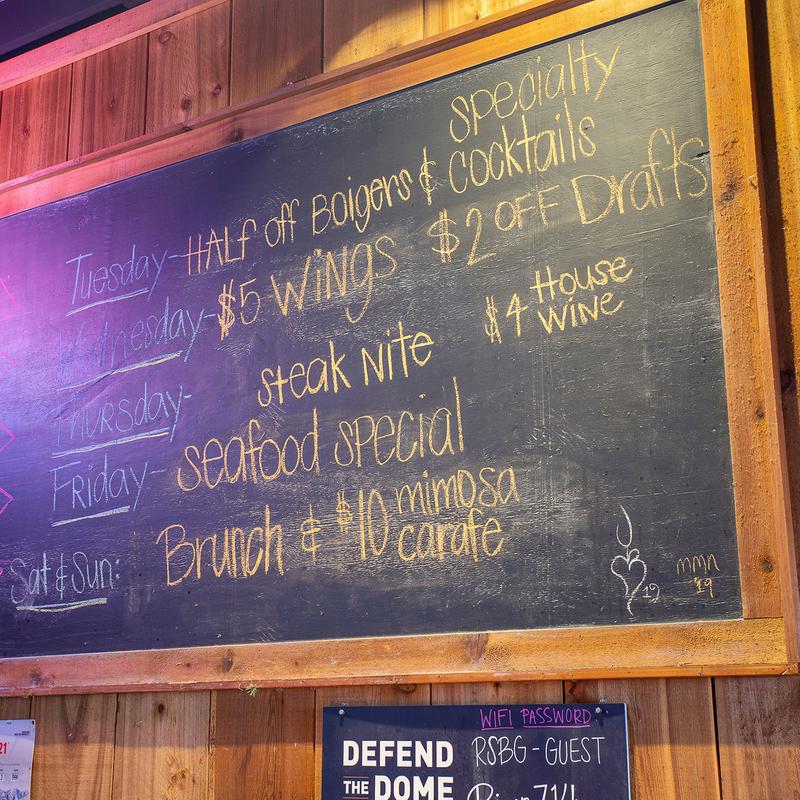 Tuesday - HALf off Boigers & specialty cocktails
Wednesday - $5 WiNgs $2 OFF Drafts
Thursday - steak Nite $4 House Wine
Friday - seafood special
Sat & Sun: Brunch & $10 mimosa carafe
19
mmn '19
WIFI PASSWORD
DEFEND THE DOME
RSBG - GUEST
21